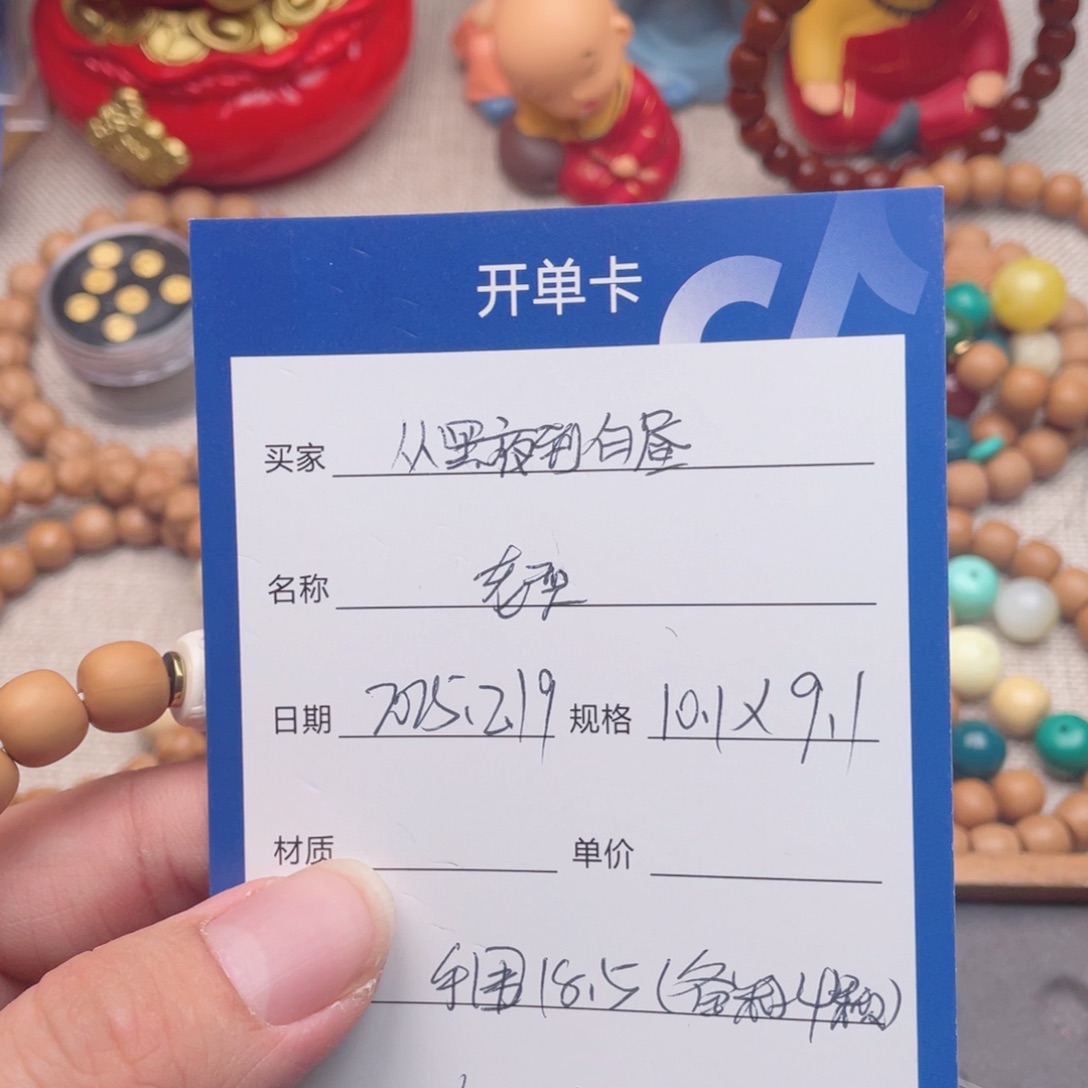 开单卡
买家 从黑夜到白昼
名称 老型
日期 2025.2.19 规格 10.1×9.1
材质 单价
手围18.5(备利4颗)